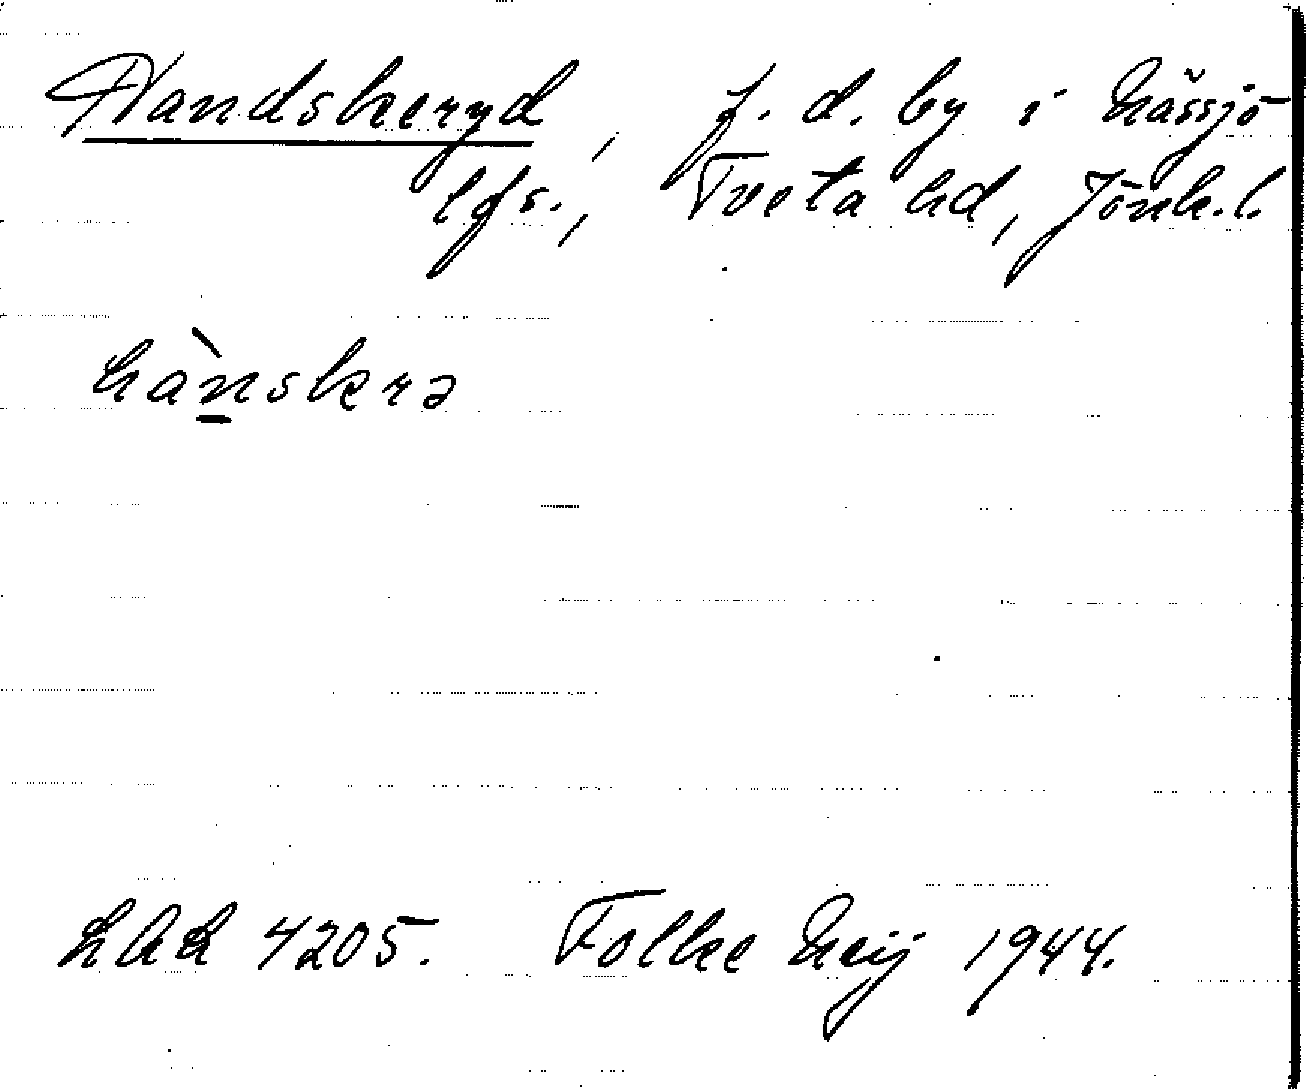 Handskeryd, f. d. by i Nässjö
lfs., Tveta hd, Jönk. l.
hànskrə
4205. Folke Heij 1944.